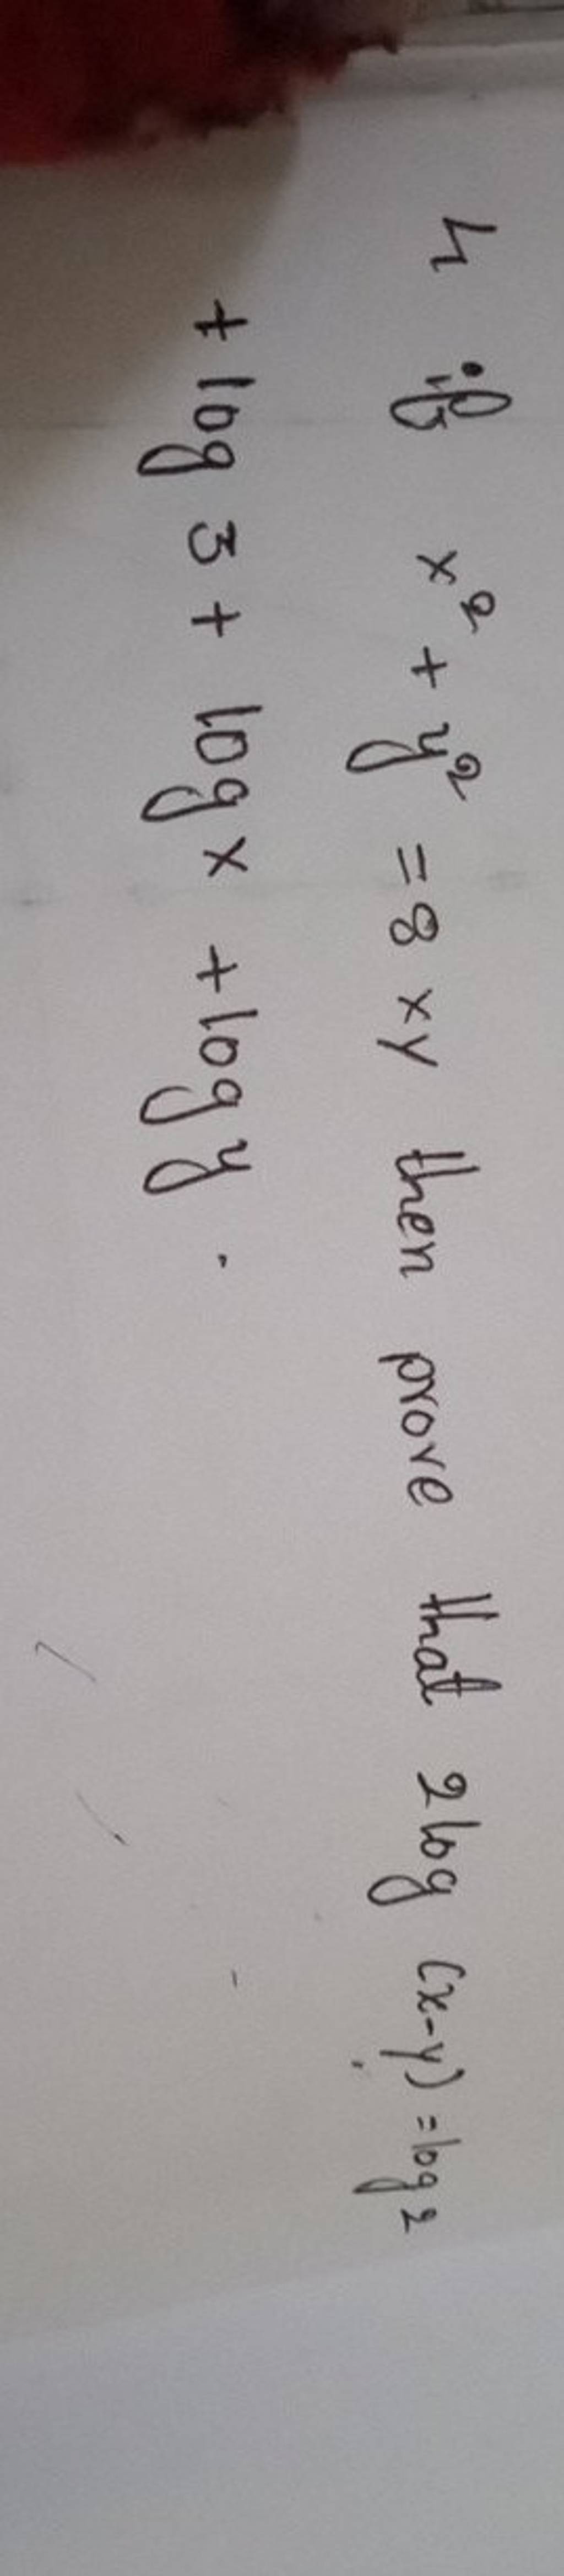 4 if x² + y² = 8 xy then prove that 2log (x-y) = log 2
+ log 3 + log x + log y .